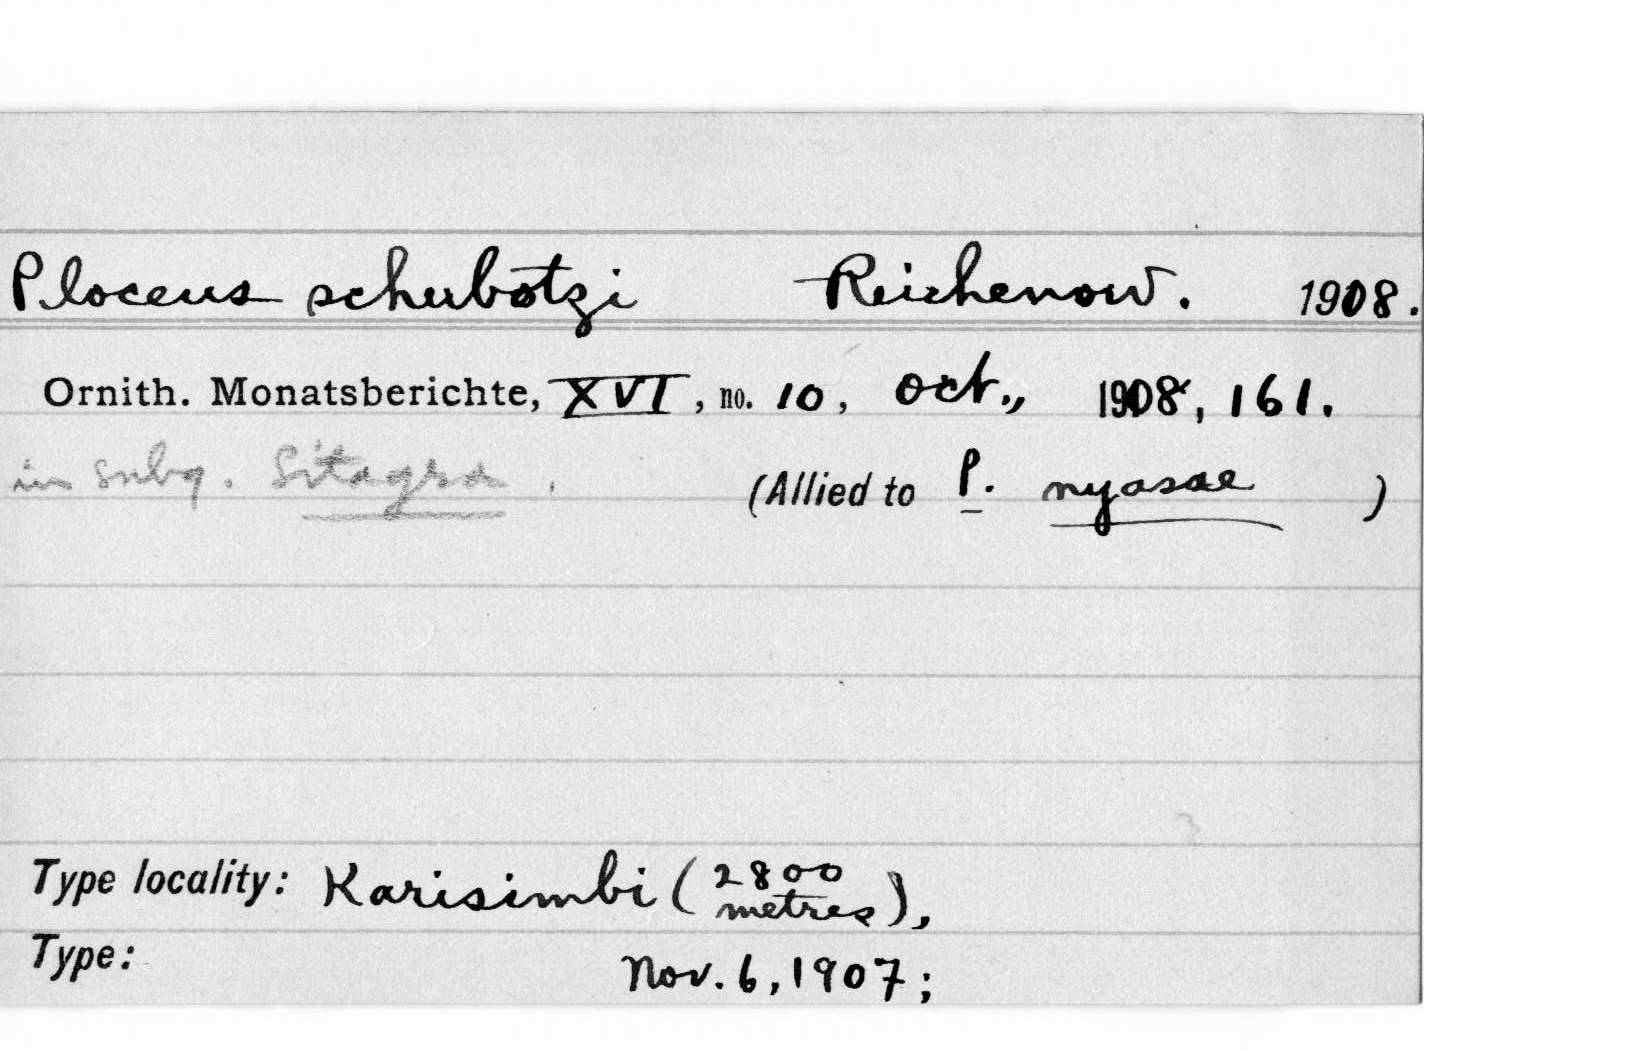 Ploceus schubotzi Reichenow. 1908.
Ornith. Monatsberichte, XVI, no. 10, Oct., 1908, 161.
in subg. Sitagra. (Allied to P. nyasae )
Type locality: Karisimbi (2800 metres),
Type: Nov. 6, 1907;